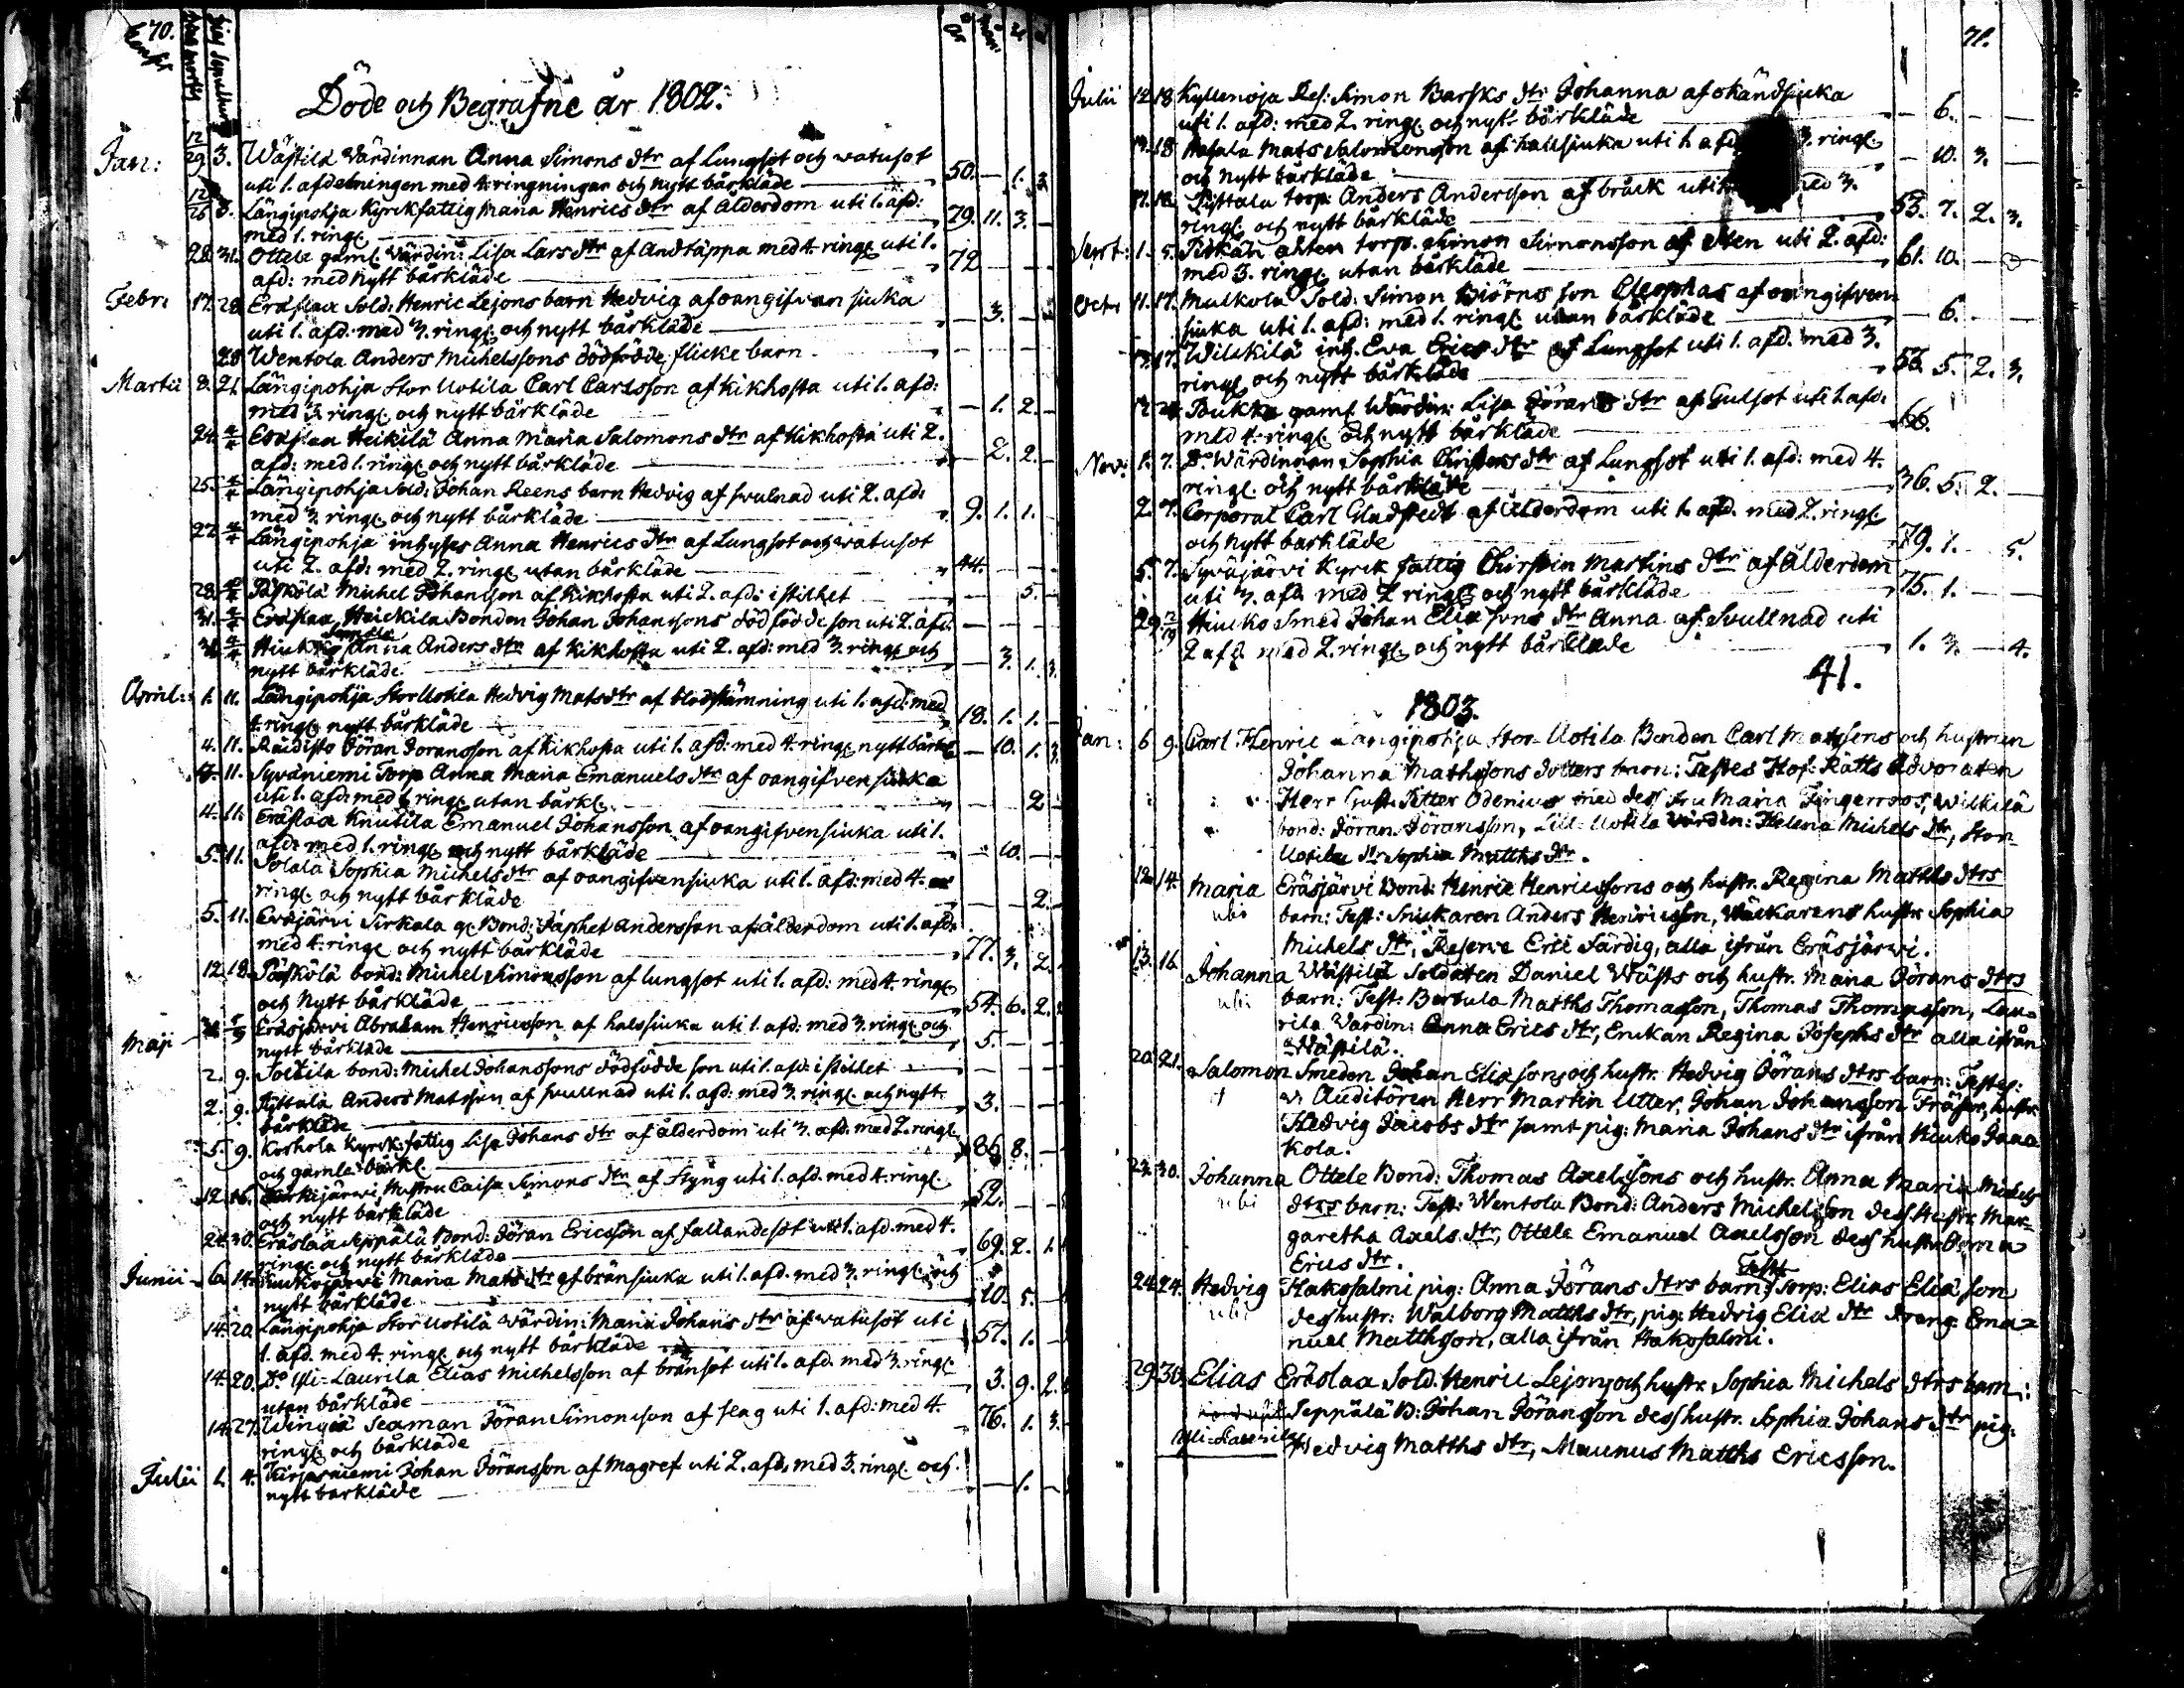 70.
Döde och Begrafne år 1802.
Jan: 12/29 3. Wästilä Wärdinnan Anna Simons dtr af Lungsot och watusot
uti 1. afdelningen med 4. ringningar och nytt bårkläde 50. — 1. 3
12/26 3. Längipohja Kyrckfattig Maria Henrics dtr af ålderdom uti 1. afd:
med 1. ringl. 79. 11. 3. —
28. 31. Ottele gaml. Wärdin: Lisa Lars dtr af Andtäppa med 4. ringl. uti 1.
afd: med nytt bårkläde 72
Febr: 17. 28. Eräslax Sold: Henric Lejons barn Hedvig af oangifven siuka
uti 1. afd. med 3. ringl. och nytt bårkläde — 3. —
28 Wentola Anders Michelssons dödfödde flicke barn
Martii 8. 21. Längipohja Stor Uotila Carl Carlsson af kikhosta uti 1. afd:
med 3. ringl. och nytt bårkläde — 1. 2. —
24. Eräslax Heikilä Anna Maria Salomons dtr af kikhosta uti 2.
afd: med 1. ringl. och nytt bårkläde 2. 2. —
25. Längipohja Sold: Johan Reens barn Hedvig af svulnad uti 2. afd:
med 3. ringl. och nytt bårkläde 9. 1. 1.
27. Längipohja inhyses Anna Henrics dtr af Lungsot och watusot
uti 2. afd: med 2. ringl. utan bårkläde 44. —
28. Päskölä Michel Johansson af kikhosta uti 2. afd: i stilhet — 5. —
31. Eräslax Heickilä Bonden Johan Johanssons dödfödde son uti 2. afd. —
31. Hiuko Anna Anders dtr af kikhosta uti 2. afd: med 3. ringl. och
nytt bårkläde 3. 1. 3.
April: 1. 11. Längipohja Stor Uotila Hedvig Mats dtr af blodstämning uti 1. afd: med
4. ringl. nytt bårkläde 18. 1. 1. —
4. 11. Räidistö Jöran Joransson af kikhosta uti 1. afd: med 4. ringl. nytt bårkl. — 10. 1. 3
11. Syväniemi Torp. Anna Maria Emanuels dtr af oangifven siuka
uti 1. afd: med ringl. utan bårkl. 2
4. 11. Eräslax Knutila Emanuel Johansson af oangifven siuka uti 1.
afd: med 1. ringl. och nytt bårkläde — 10. —
5. 11. Solala Sophia Michels dtr af oangifven siuka uti 1. afd: med 4.
ringl. och nytt bårkläde — 2.
5. 11. Eräjärvi Sirkala gl. Bond: Japhet Andersson af ålderdom uti 1. afd.
med 4. ringl. och nytt bårkläde 77. 3. 2.
12. 18. Päskölä bond: Michel Simonsson af lungsot uti 1. afd: med 4. ringl.
och nytt bårkläde 54. 6. 2.
Maji Eräsjärvi Abraham Henricsson af halssiuka uti 1. afd: med 3. ringl. och
nytt bårkläde 5. —
2. 9. Soltila bond: Michel Johanssons dödfödde son uti 1. afd: i stillet
2. 9. Pyttälä Anders Matsson af svullnad uti 1. afd: med 3. ringl. och nytt
bårkläde 3. —
5. 9. Korhola Kyrck: fattig Lisa Johans dtr af ålderdom uti 3. afd. med 2. ringl.
och gamla bårkl. 86. 8. —
12. 16. Hustru Caisa Simons dtr af Styng uti 1. afd. med 4. ringl.
och nytt bårkläde 52. —
24. 30. Eräslax Seppälä Bond: Jöran Ericsson af fallandesot uti 1. afd. med 4.
ringl. och nytt bårkläde 69. 2. 1.
Junii 6. 14. Maria Mats dtr af bränsiuka uti 1. afd. med 3. ringl. och
nytt bårkläde 10. 5. —
14. 20. Längipohja Stor Uotila Wärdin: Maria Johans dtr af watusot uti
1. afd. med 4. ringl. och nytt bårkläde 57. 1.
14. 20. Do Yli-Laurila Elias Michelsson af bränsot uti 1. afd. med 3. ringl.
utan bårkläde 3. 9. 2.
14. 27. Seaman Jöran Simonsson af slag uti 1. afd: med 4.
ringl. och bårkläde 76. 1. 3.
Julii 1. 4. Kirjasniemi Johan Jöransson af Magref uti 2. afd. med 3. ringl. och
nytt bårkläde — 1. —
71.
Julii 12. 18. Kyllenoja Res: Simon Barsks dtr Johanna af okänd siuka
uti 1. afd: med 2. ringl. och nytt bårkläde 6. —
18 Mats Salomonsson af halssiuka uti 1. afd 3. ringl.
och nytt bårkläde — 10. 3. —
Pyttälä torp: Anders Andersson af bråck uti med 3.
ringl. och nytt bårkläde 53. 7. 2. 3.
Sept: 1. 5. torp. Simon Simonsson af Sten uti 2. afd:
med 3. ringl. utan bårkläde 61. 10. —
Octr 11. 17. Mulkola Sold: Simon Biörns son Cleophas af oangifven
siuka uti 1. afd: med 1. ringl. utan bårkläde — 6. —
13. 17. Wilckilä inh. Eva Erics dtr af Lungsot uti 1. afd. med 3.
ringl. och nytt bårkläde 53. 5. 2. 3.
Pukka gaml. Wärdin: Lisa Jörans dtr af Gulsot uti 1. afd.
med 4. ringl. och nytt bårkläde 66.
Nov: 1. 7. Do Wärdinnan Sophia Christers dtr af Lungsot uti 1. afd: med 4.
ringl. och nytt bårkläde 36. 5. 2. —
2. 7. Corporal Carl Gladstedt af ålderdom uti 1. afd. med 2. ringl.
och nytt bårkläde 79. 1. — 5.
5. 7. Syväjärvi Kyrck fattig Chirstin Martins dtr af ålderdom
uti 3. afd. med 2 ringl. och nytt bårkläde 75. 1. —
29. 12/19 Hiucko Smed Johan Elia sons dtr Anna af Svullnad uti
2 afd. med 2. ringl. och nytt bårkläde 1. 3. — 4.
41.
1803.
Jan: 6 9. Carl Henric Längipohja Stor-Uotila Bonden Carl Matssons och hustrun
Johanna Mathssons dotters barn: Testes Hof-Rätts Advocaten
Herr Gust. Petter Odenius med dess fru Maria Fingerroos, Wilkilä
bond: Jöran Jöransson, Lill-Uotila Wärdin: Helena Michels dtr, Stor-
Uotila dtr Sophia Matths dtr.
12. 14. Maria Eräsjärvi Bond: Henric Henricssons och hustr. Regina Matths dtrs
ubi barn: Test: Snickaren Anders Henricsson, hustr. Sophia
Michels dtr, Reserve Eric Färdig, alla ifrån Eräsjärvi.
13. 16. Johanna Wästilä Soldaten Daniel Wästs och hustr. Maria Jörans dtrs
ubi barn: Test: Bertula Matths Thomasson, Thomas Thomasson, Lau-
rila Wärdin: Anna Erics dtr, Enckan Regina Josephs dtr alla ifrån
Wästilä.
20. 21. Salomon Smeden Johan Elia sons och hustr. Hedvig Jörans dtrs barn: Testes:
Auditören Herr Martin Utter, Johan Johansson Fräser, hustr.
Hedvig Jacobs dtr samt pig: Maria Johans dtr ifrån Hiuko Jaac
kola.
23. 30. Johanna Ottele Bond: Thomas Axelssons och hustr. Anna Maria Michels
ubi dtrs barn: Test: Wentola Bond: Anders Michelsson dess Hustr. Mar-
garetha Axels dtr, Ottele Emanuel Axelsson dess hustr. Anna
Erics dtr.
24. 24. Hedvig Hakosalmi pig: Anna Jörans dtrs barn: Test: Torp: Elias Elia son
ubi dess hustr: Walborg Matths dtr, pig: Hedvig Elia dtr dräng Ema-
nuel Matthsson, alla ifrån Hakosalmi.
29. 30. Elias Eräslax Sold: Henric Lejons och hustr. Sophia Michels dtrs barn:
Seppälä B: Johan Jöransson dess hustr. Sophia Johans dtr pig:
Yli-Laurila Hedvig Matths dtr, Maunus Matths Ericsson.